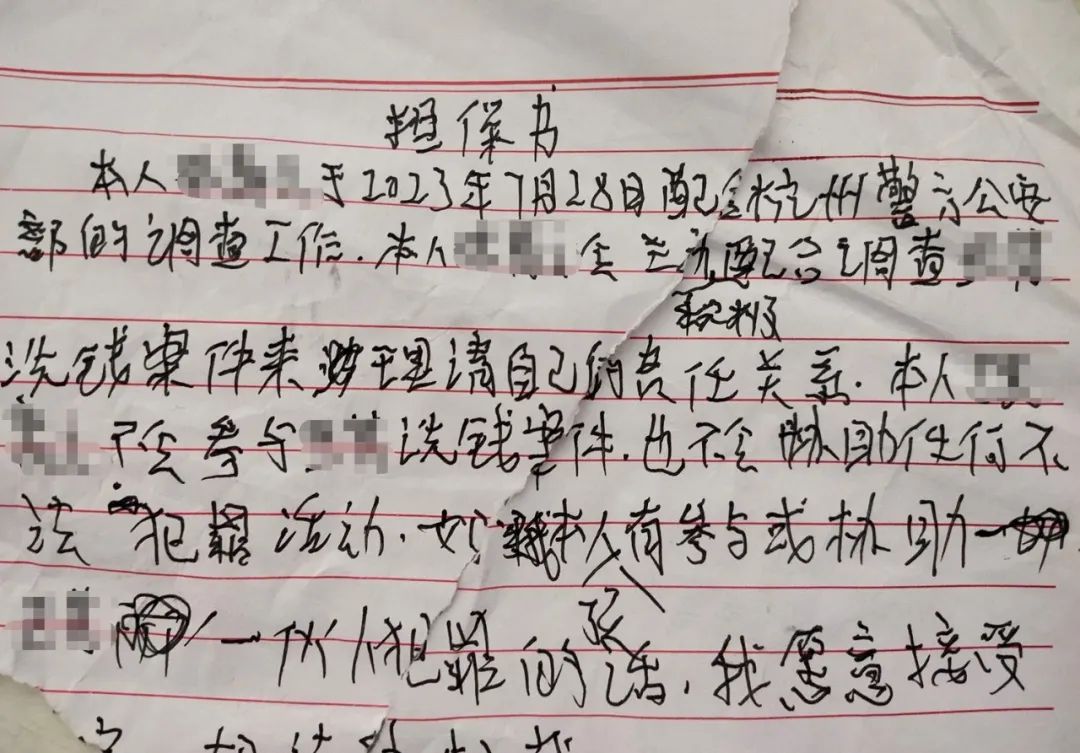 担保书
本人于2023年7月28日配合杭州警方公安
部的调查工作.本人会主动配合调查
积极
洗钱案件来梦理清自己的责任关系.本人
不会参与洗钱案件.也不会协助任何不
法犯罪活动.如本人有参与或协助
一伙人犯罪的话,我愿意接受